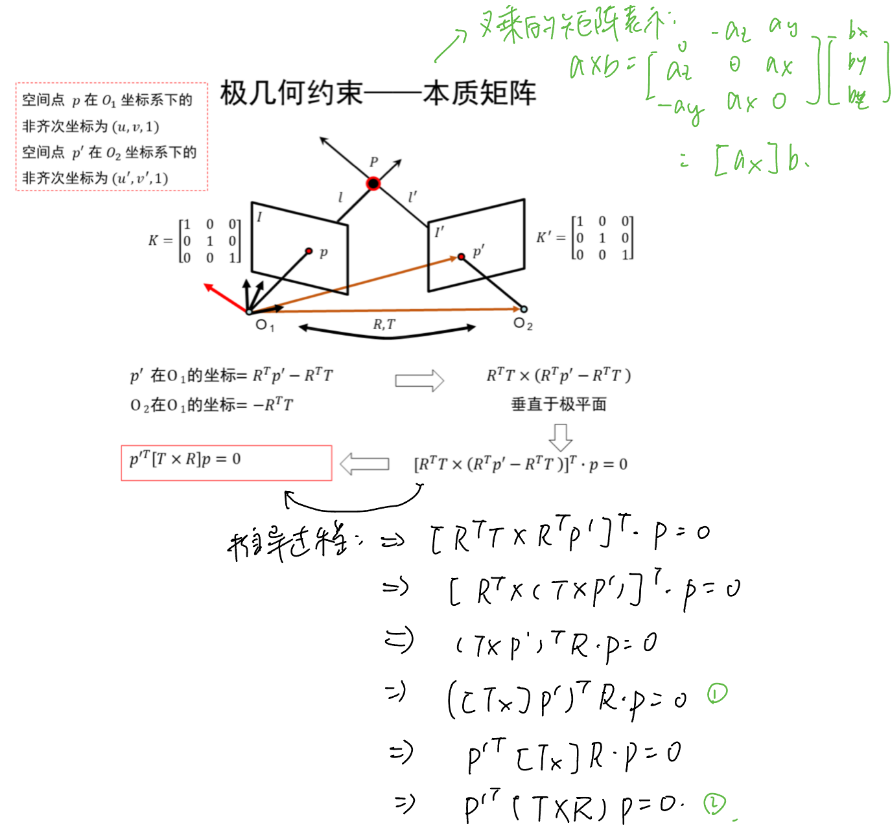 叉乘的矩阵表示:
a×b = [0 -az ay; az 0 ax; -ay ax 0] [bx; by; bz]
= [a×] b.
极几何约束——本质矩阵
空间点 p 在 O₁ 坐标系下的
非齐次坐标为 (u, v, 1)
空间点 p′ 在 O₂ 坐标系下的
非齐次坐标为 (u′, v′, 1)
P
l l′
I I′
K = [1 0 0; 0 1 0; 0 0 1]
K′ = [1 0 0; 0 1 0; 0 0 1]
p p′
O₁ R, T O₂
p′ 在O₁的坐标= RᵀP′ − RᵀT
RᵀT × (Rᵀp′ − RᵀT )
O₂在O₁的坐标= −RᵀT
垂直于极平面
p′ᵀ[T × R]p = 0
[RᵀT × (Rᵀp′ − RᵀT )]ᵀ · p = 0
推导过程: ⇒ [RᵀT × Rᵀp′]ᵀ · p = 0
⇒ [Rᵀ×(T×p′)]ᵀ · p = 0
⇒ (T×p′)ᵀR · p = 0
⇒ ([T×]p′)ᵀR · p = 0 ①
⇒ p′ᵀ[T×]R · p = 0
⇒ p′ᵀ(T×R)p = 0. ②